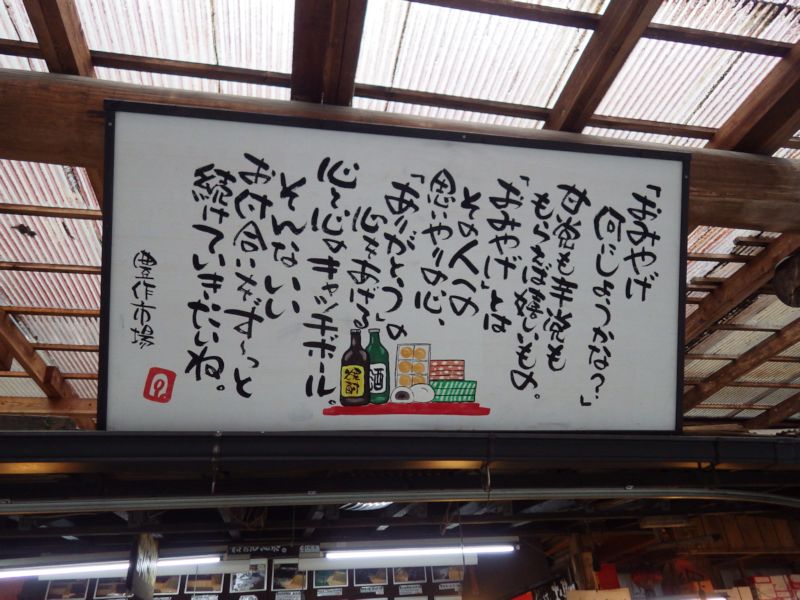 「おみやげ
何にしようかな?」
甘党も辛党も
もらえば嬉しいもの。
「おみやげ」とは
その人への
思いやりの心、
「ありがとう」の
心をあげる
心と心のキャッチボール。
そんないい
お付合いがず〜っと
続けていきたいね。
豊作市場
焼酎
酒